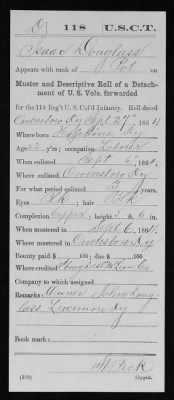 D | 118 | U.S.C.T.
Isaac Douglass
Appears with rank of Pvt. on
Muster and Descriptive Roll of a Detach-
ment of U. S. Vols. forwarded
for the 118 Reg't U. S. Col'd Infantry. Roll dated
Owensboro Ky Sept 27", 1864.
Where born Hopkins Ky
Age 22 y'rs; occupation Laborer
When enlisted Sept 6, 1864.
Where enlisted Owensboro Ky
For what period enlisted 3 years.
Eyes Blk; hair Blk
Complexion Copper; height 5 ft. 6 in.
When mustered in Sept 6, 1864.
Where mustered in Owensboro Ky
Bounty paid $ 100; due $ 100
Where credited
McLean Co.
Company to which assigned
Remarks: Owner John Doug-
lass Livermore Ky
Book mark:
Peck
(339) Copyist.